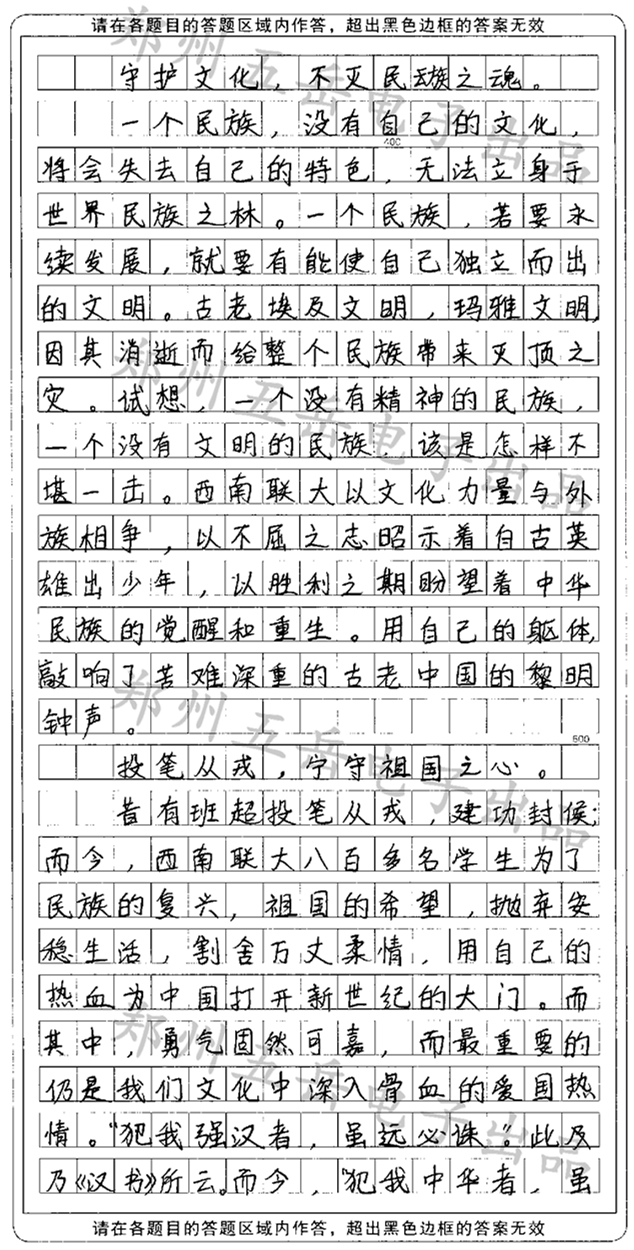 请在各题目的答题区域内作答，超出黑色边框的答案无效
守护文化，不灭民族之魂。
一个民族，没有自己的文化，
400
将会失去自己的特色，无法立身于
世界民族之林。一个民族，若要永
续发展，就要有能使自己独立而出
的文明。古老埃及文明，玛雅文明，
因其消逝而给整个民族带来灭顶之
灾。试想，一个没有精神的民族，
一个没有文明的民族，该是怎样不
堪一击。西南联大以文化力量与外
族相争，以不屈之志昭示着自古英
雄出少年，以胜利之期盼望着中华
民族的觉醒和重生。用自己的躯体，
敲响了苦难深重的古老中国的黎明
钟声。
500
投笔从戎，宁守祖国之心。
昔有班超投笔从戎，建功封候；
而今，西南联大八百多名学生为了
民族的复兴，祖国的希望，抛弃安
稳生活，割舍万丈柔情，用自己的
热血为中国打开新世纪的大门。而
其中，勇气固然可嘉，而最重要的
仍是我们文化中深入骨血的爱国热
情。“犯我强汉者，虽远必诛”。此及
乃《汉书》所云。而今，“犯我中华者，虽
请在各题目的答题区域内作答，超出黑色边框的答案无效
郑州五岳电子出品
郑州五岳电子出品
郑州五岳电子出品
郑州五岳电子出品